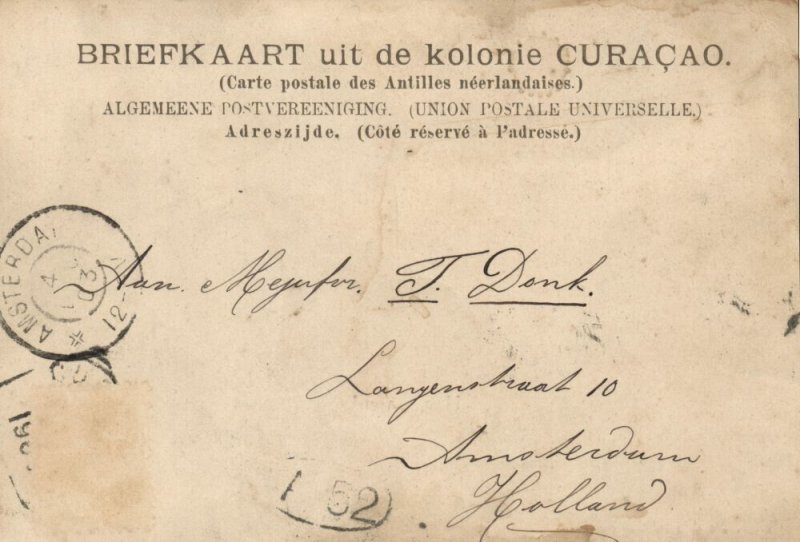 BRIEFKAART uit de kolonie CURAÇAO.
(Carte postale des Antilles néerlandaises.)
ALGEMEENE POSTVEREENIGING. (UNION POSTALE UNIVERSELLE.)
Adreszijde. (Côté réservé à l'adresse.)
AMSTERDA
4
03
12-
Aan. Mejufvr. T. Donk.
Langenstraat 10
Amsterdam
Holland.
52